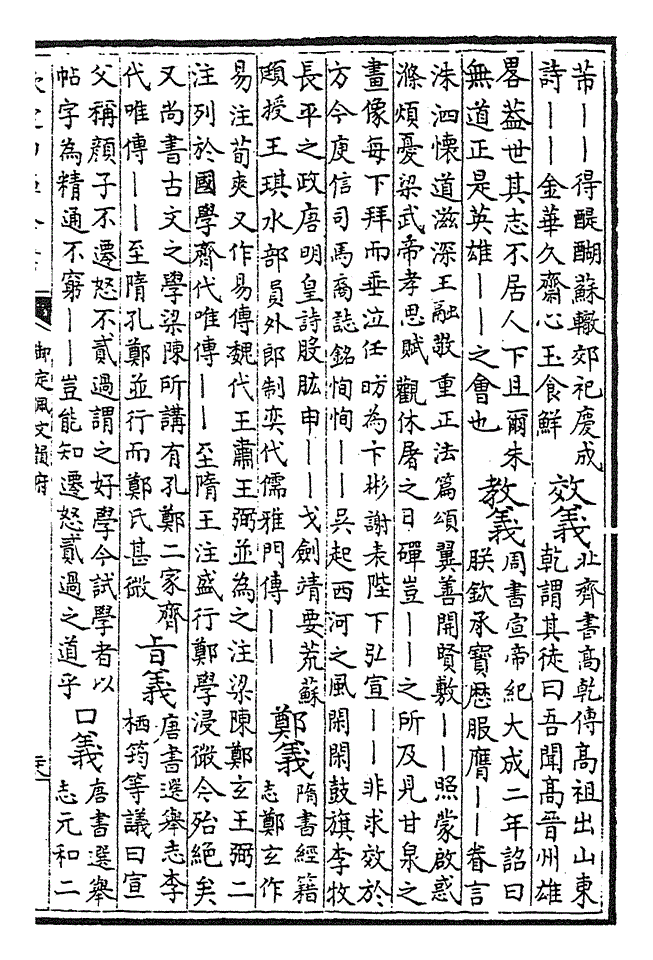 芾——得醍醐蘇轍郊祀慶成
詩——金華久齋心玉食鮮
效義
北齊書高乾傳高祖出山東
乾謂其徒曰吾聞高晉州雄
畧葢世其志不居人下且爾朱
無道正是英雄——之會也
教義
周書宣帝紀大成二年詔曰
朕欽承寶厯服膺——眷言
洙泗懷道滋深王融敬重正法篇頌翼善開賢敷——照蒙啟惑
滌煩憂梁武帝孝思賦觀休屠之日磾豈——之所及見甘泉之
畫像每下拜而垂泣任昉為卞彬謝表陛下弘宣——非求效於
方今庾信司馬裔誌銘恂恂——吳起西河之風閑閑鼓旗李牧
長平之政唐明皇詩股肱申——戈劍靖要荒蘇
頲授王琪水部員外郎制奕代儒雅門傳——
鄭義
隋書經籍
志鄭玄作
易注荀爽又作易傳魏代王肅王弼並為之注梁陳鄭玄王弼二
注列於國學齊代唯傳——至隋王注盛行鄭學浸微今殆絕矣
又尚書古文之學梁陳所講有孔鄭二家齊
代唯傳——至隋孔鄭並行而鄭氏甚微
旨義
唐書選舉志李
栖筠等議曰宣
父稱顔子不遷怒不貳過謂之好學今試學者以
帖字為精通不窮——豈能知遷怒貳過之道乎
口義
唐書選舉
志元和二
御定佩文韻府